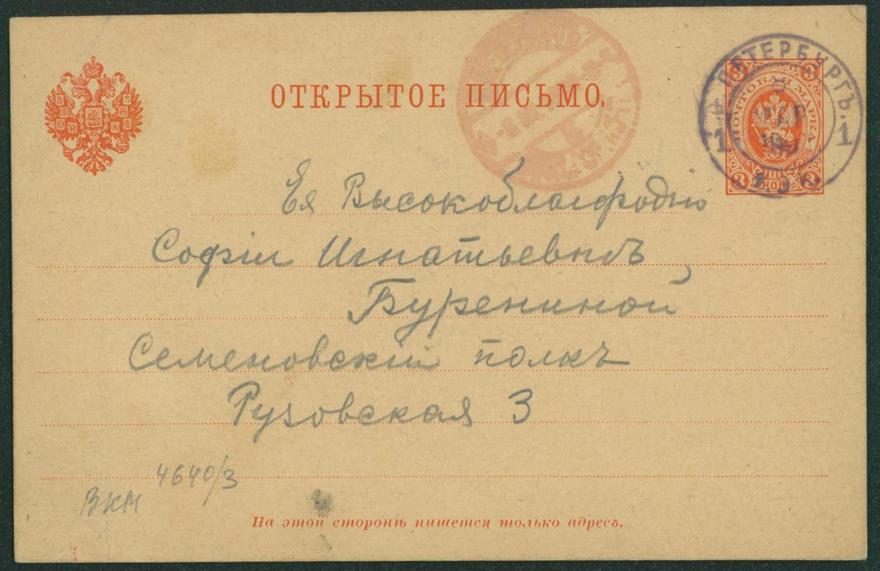 ОТКРЫТОЕ ПИСЬМО.
ПЕТЕРБУРГЪ.
1
1
ПОЧТОВАЯ МАРКА
3
3
3
3
Ея Высокоблагородію
Софіи Игнатьевнѣ
Бурениной
Семеновскій полкъ
Рузовская 3
ВКМ 4640/3
На этой сторонѣ пишется только адресъ.